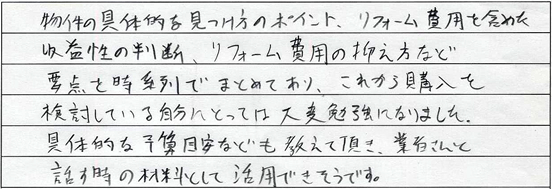 物件の具体的な見つけ方のポイント、リフォーム費用を含めた
収益性の判断、リフォーム費用の抑え方など
要点を時系列でまとめてあり、これから購入を
検討している自分にとっては大変勉強になりました。
具体的な予算目安なども教えて頂き、業者さんと
話す時の材料として活用できそうです。